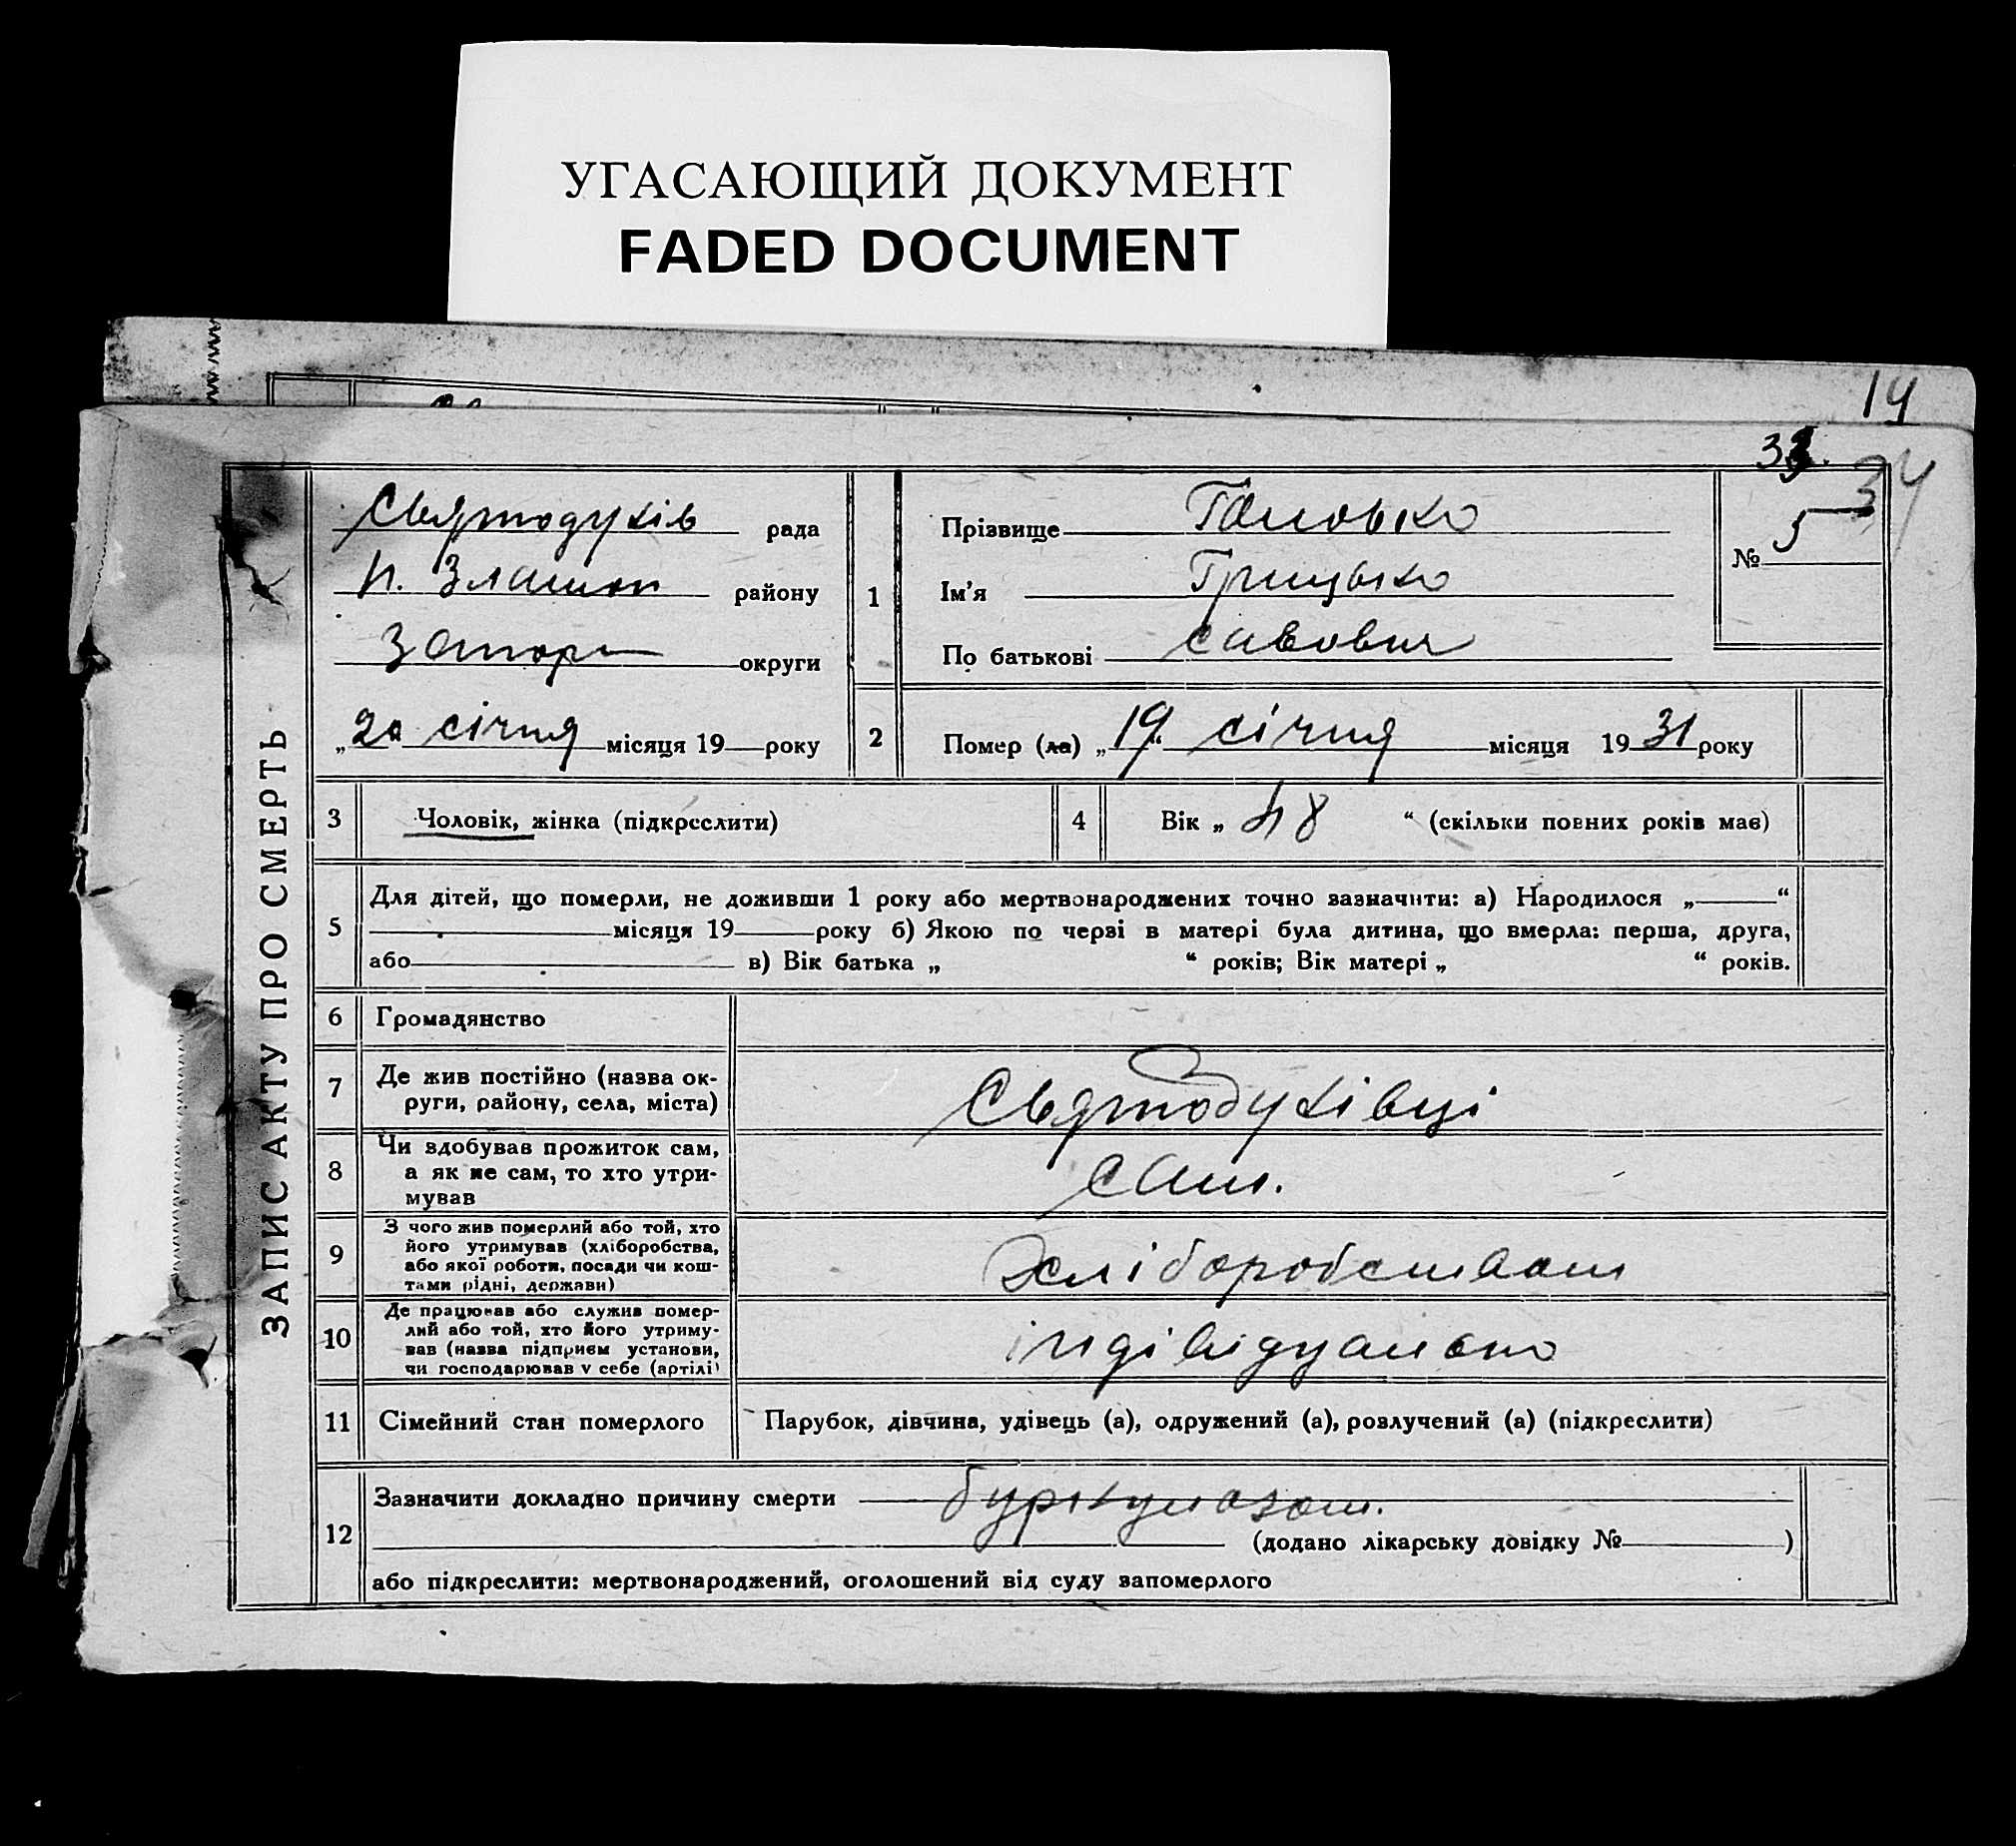 УГАСАЮЩИЙ ДОКУМЕНТ
FADED DOCUMENT
14
33.
34
ЗАПИС АКТУ ПРО СМЕРТЬ
Святодухів рада
Н. Златоп району
округи
„20 січня місяця 19 року
1
Прізвище
Ім'я Грицько
По батькові Савович
№ 5
2
Помер (ла) „19“ січня місяця 1931 року
3
Чоловік, жінка (підкреслити)
4
Вік „48“ (скільки повних років має)
5
Для дітей, що померли, не доживши 1 року або мертвонароджених точно зазначити: а) Народилося „ “
місяця 19 року б) Якою по черзі в матері була дитина, що вмерла: перша, друга,
або в) Вік батька „ “ років; Вік матері „ “ років.
6
Громадянство
7
Де жив постійно (назва ок-
руги, району, села, міста)
Святодухівці
8
Чи здобував прожиток сам,
а як не сам, то хто утри-
мував
сам.
9
З чого жив померлий або той, хто
його утримував (хліборобства,
або якої роботи, посади чи кош-
тами рідні, держави)
Хліборобством
10
Де працював або служив помер-
лий або той, хто його утриму-
вав (назва підприєм установи,
чи господарював у себе (артілі)
індівідуально
11
Сімейний стан померлого
Парубок, дівчина, удівець (а), одружений (а), розлучений (а) (підкреслити)
12
Зазначити докладно причину смерти
(додано лікарську довідку № )
або підкреслити: мертвонароджений, оголошений від суду запомерлого